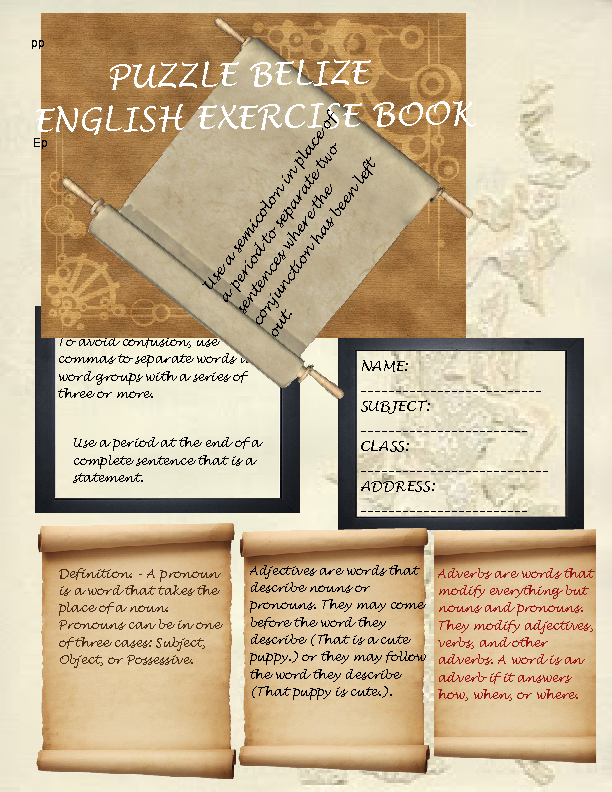 pp
PUZZLE BELIZE
ENGLISH EXERCISE BOOK
Ep
Use a semicolon in place of
a period to separate two
sentences where the
conjunction has been left
out.
To avoid confusion, use
commas to separate words
word groups with a series of
three or more.
Use a period at the end of a
complete sentence that is a
statement.
NAME:
SUBJECT:
CLASS:
ADDRESS:
Definition. - A pronoun
is a word that takes the
place of a noun.
Pronouns can be in one
of three cases: Subject,
Object, or Possessive.
Adjectives are words that
describe nouns or
pronouns. They may come
before the word they
describe (That is a cute
puppy.) or they may follow
the word they describe
(That puppy is cute.).
Adverbs are words that
modify everything but
nouns and pronouns.
They modify adjectives,
verbs, and other
adverbs. A word is an
adverb if it answers
how, when, or where.